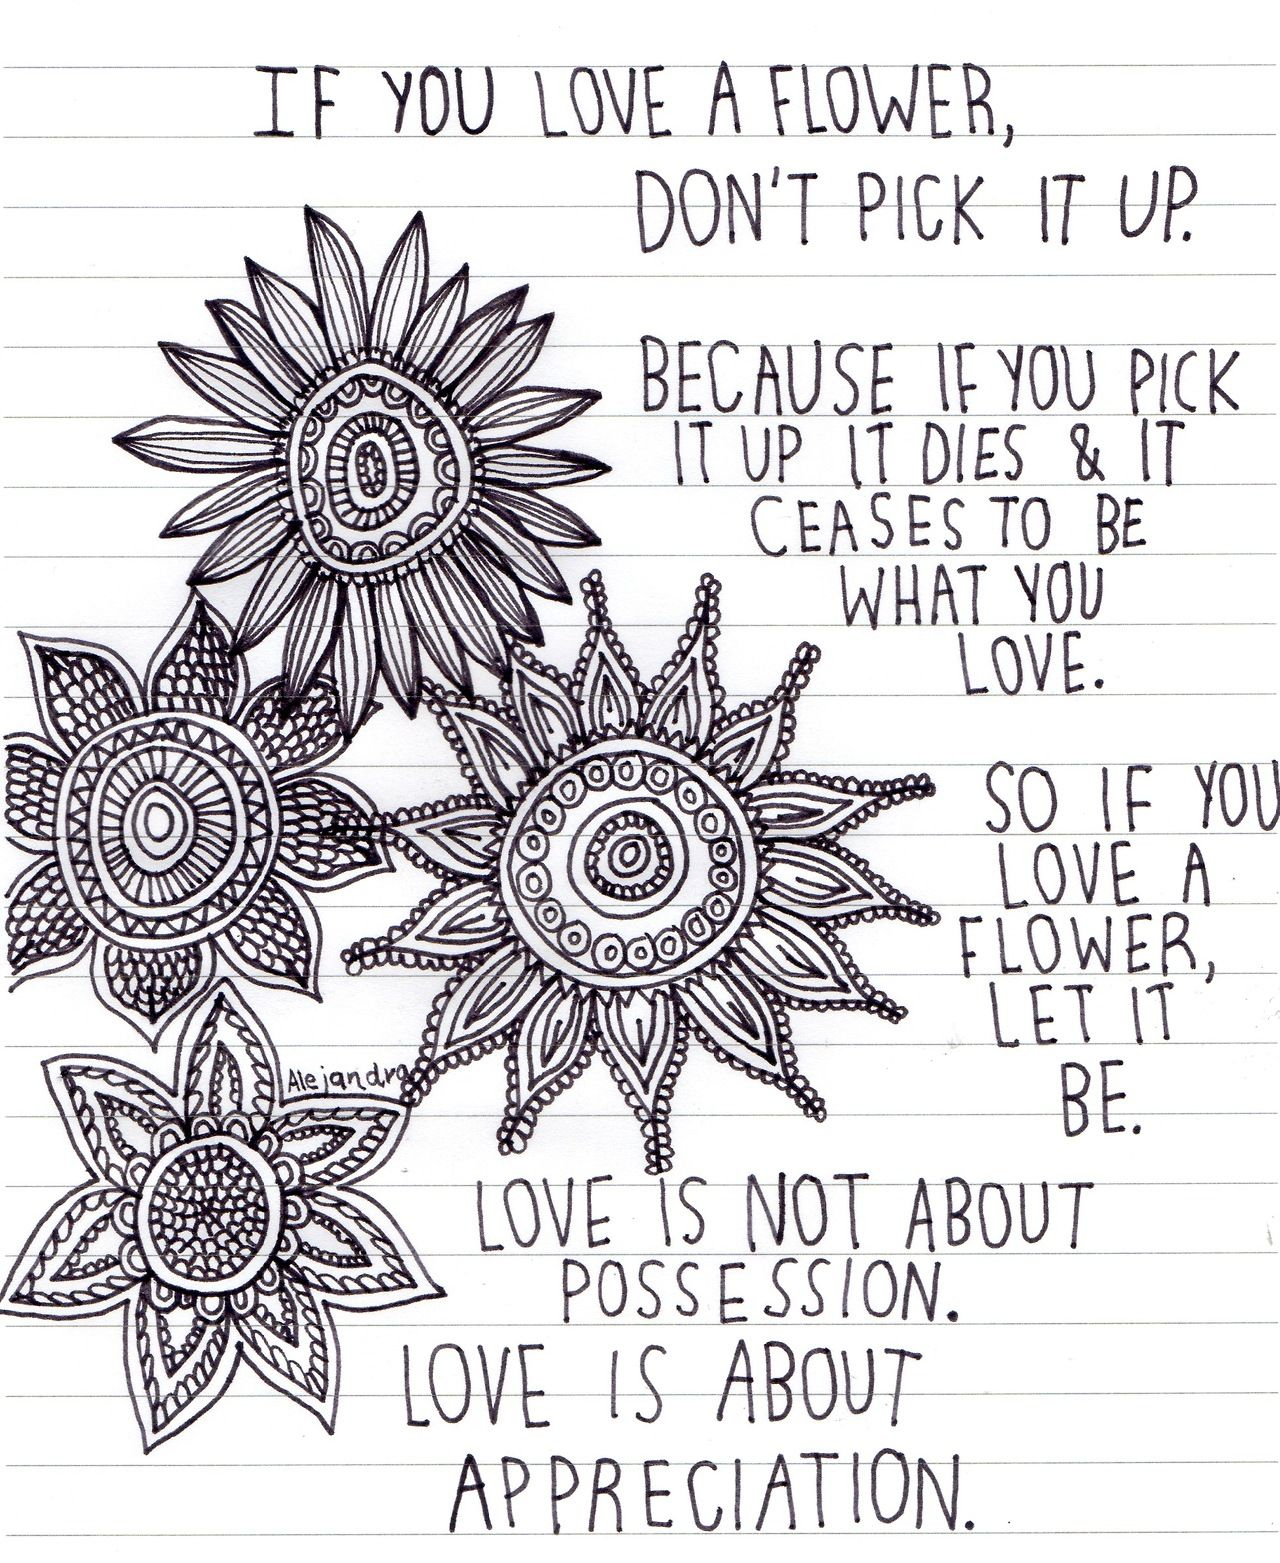 IF YOU LOVE A FLOWER,
DON'T PICK IT UP.
BECAUSE IF YOU PICK
IT UP IT DIES & IT
CEASES TO BE
WHAT YOU
LOVE.
SO IF YOU
LOVE A
FLOWER,
LET IT
BE.
Alejandra
LOVE IS NOT ABOUT
POSSESSION.
LOVE IS ABOUT
APPRECIATION.